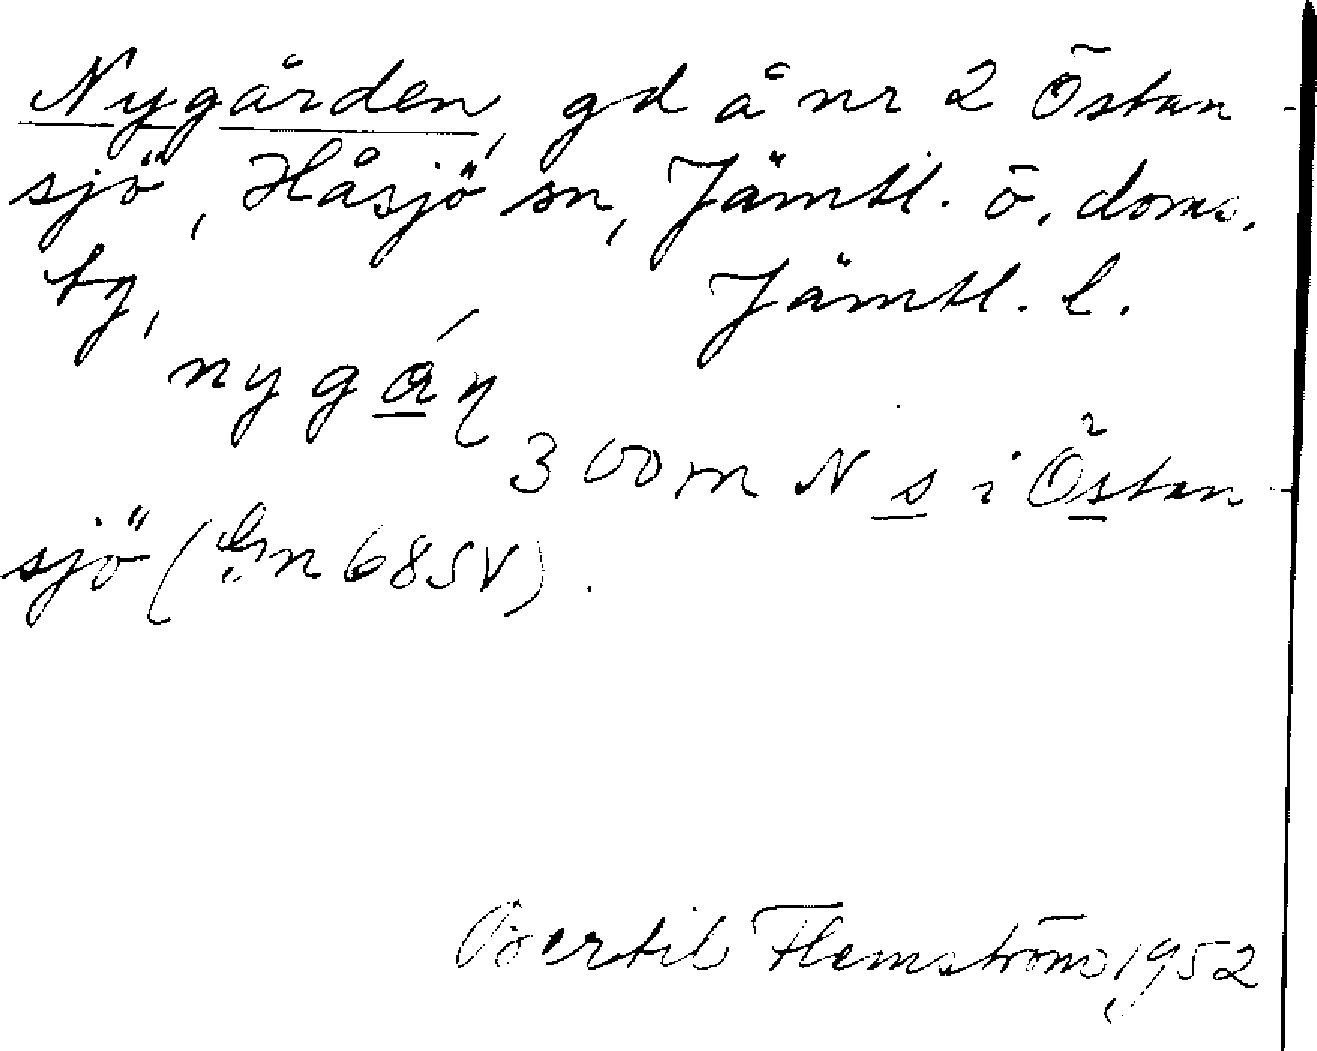 Nygården, gd å nr 2 Östan-
sjö, Håsjö sn, Jämtl. ö. doms.
Jämtl. l.
300 m N s i Östan-
sjö (Gn 685V).
Bertil Flemström, 1952